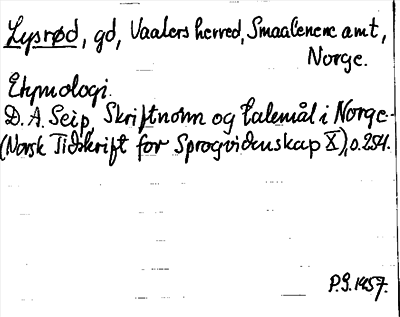 Lysrød, gd, Vaalers herred, Smaalenene amt,
Norge.
Etymologi.
D. A. Seip, Skriftnorm og talemål i Norge.
(Norsk Tidskrift for Sprogvidenskap X), s. 254.
P.S. 1957.